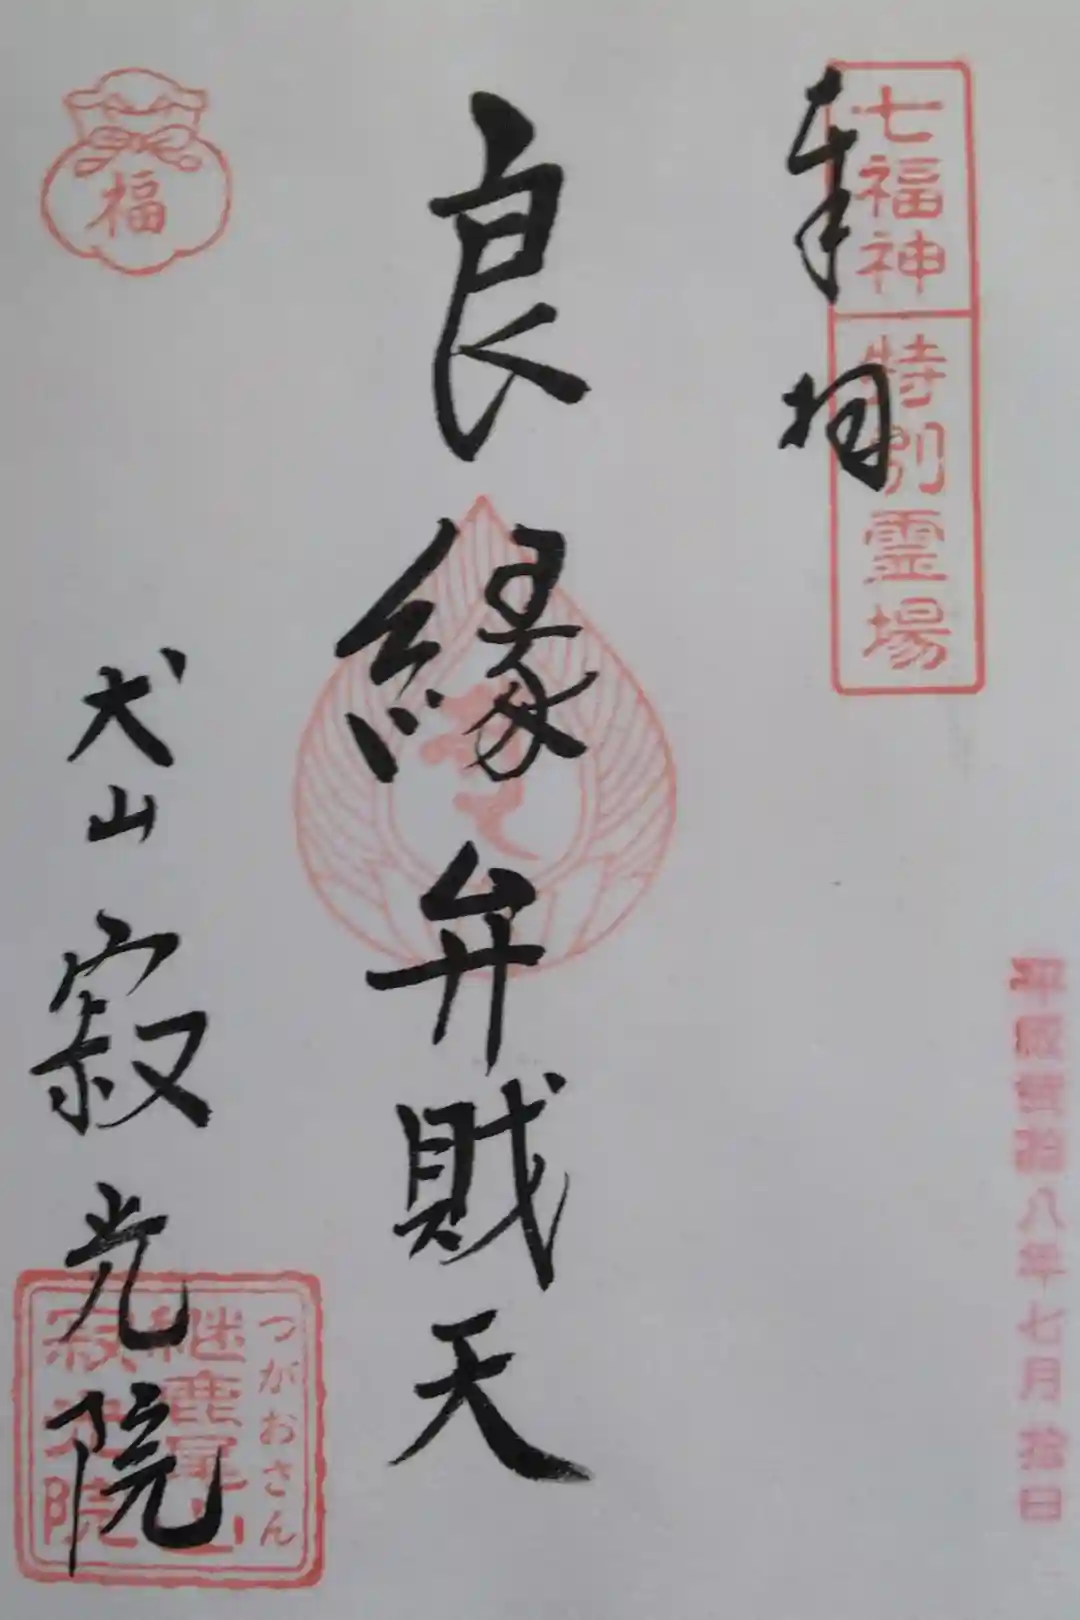 七福神 特別霊場
奉拝
平成貳拾八年七月拾日
良縁弁財天
福
犬山 寂光院
つがおさん
継鹿尾山
寂光院